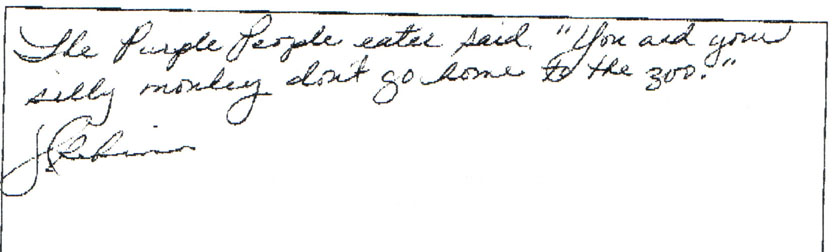 The Purple People eater said. "You and your
silly monkey don't go home to the zoo."